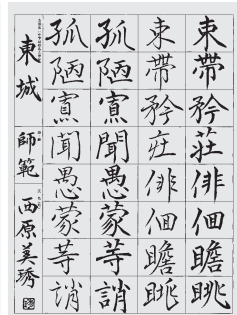 束帶矜莊俳佪瞻眺
束帶矜莊俳佪瞻眺
孤陋寡聞愚蒙等誚
孤陋寡聞愚蒙等誚
東城 師範 西原美琇